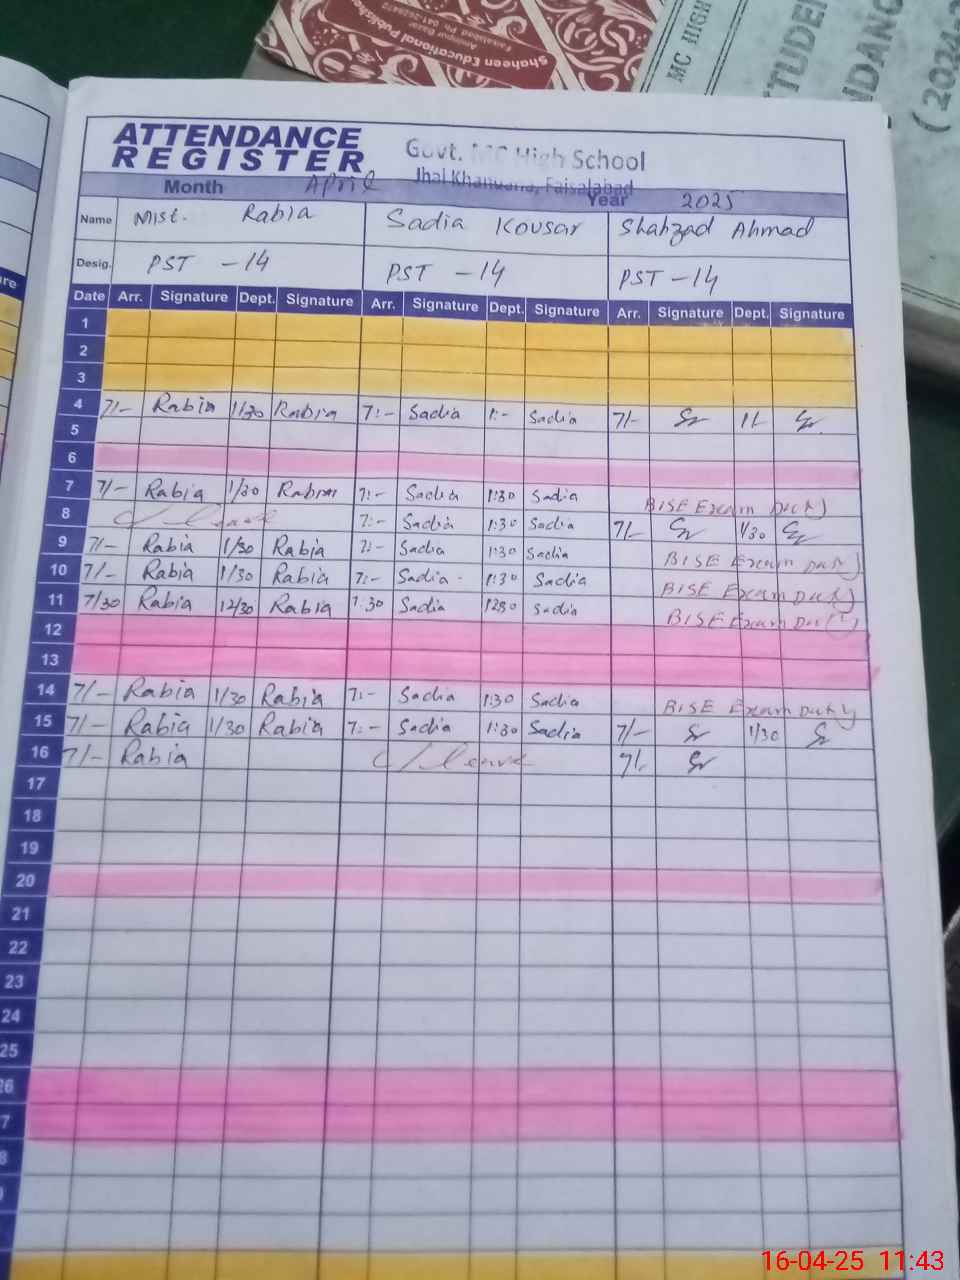 Shaheen Educational Publishe
Aminpur Bazar
Faisalabad Ph: 041-2626472
MC HIGH
TUDE
NDANC
(2024-
ATTENDANCE
REGISTER
Govt. MC High School
Jhal Khanuana, Faisalabad
Month April Year 2025
Name Mist. Rabia Sadia Kousar Shahzad Ahmad
Desig. PST - 14 PST - 14 PST - 14
Date Arr. Signature Dept. Signature Arr. Signature Dept. Signature Arr. Signature Dept. Signature
1
2
3
4 7/- Rabia 1/30 Rabia 7:- Sadia 1:- Sadia 7/- 1/-
5
6
7 7/- Rabia 1/30 Rabia 7:- Sadia 1:30 Sadia BISE Exam Duty
8 C/Leave 7:- Sadia 1:30 Sadia 7/- 1/30
9 7/- Rabia 1/30 Rabia 7:- Sadia 1:30 Sadia BISE Exam Duty
10 7/- Rabia 1/30 Rabia 7:- Sadia 1:30 Sadia BISE Exam Duty
11 7/30 Rabia 12/30 Rabia 7:30 Sadia 1230 Sadia BISE Exam Duty
12
13
14 7/- Rabia 1/30 Rabia 7:- Sadia 1:30 Sadia BISE Exam Duty
15 7/- Rabia 1/30 Rabia 7:- Sadia 1:30 Sadia 7/- 1/30
16 7/- Rabia C/Leave 7/-
17
18
19
20
21
22
23
24
25
26
7
8
16-04-25 11:43